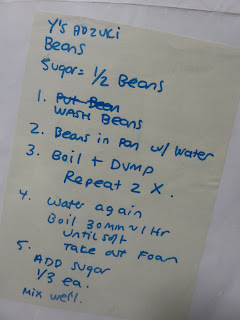 Y's ADZUKI
Beans
Sugar = 1/2 Beans
1. Put Bean
WASH Beans
2. Beans in Pan w/ water
3. Boil + DUMP
Repeat 2 X.
4. Water again
Boil 30mm~1Hr
Until soft
5. Take out Foam
ADD Sugar
1/3 ea.
Mix well.